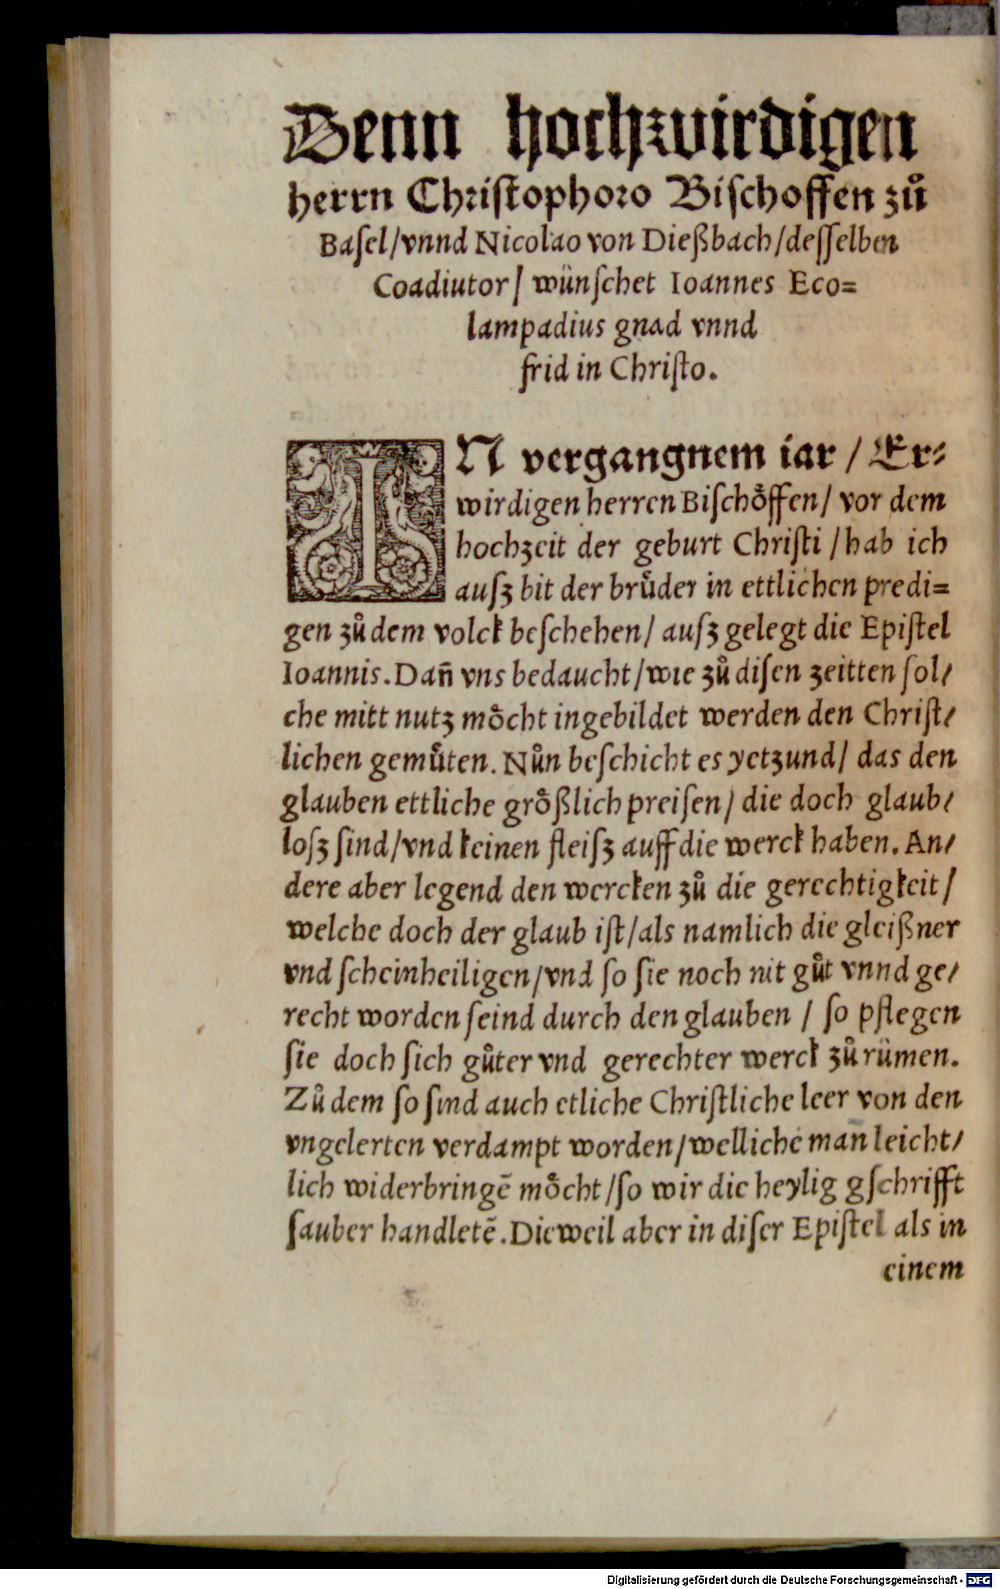 Denn hochzwirdigen
herrn Christophoro Bischoffen zuͦ
Basel/vnnd Nicolao von Dießbach/desselben
Coadiutor/ wünschet Ioannes Eco=
lampadius gnad vnnd
frid in Christo.
IN vergangnem iar / Er⸗
wirdigen herren Bischoͤffen/ vor dem
hochzeit der geburt Christi /hab ich
ausz bit der bruͤder in ettlichen predi=
gen zuͦ dem volck beschehen/ ausz gelegt die Epistel
Ioannis. Dañ vns bedaucht/wie zuͦ disen zeitten sol/
che mitt nutz moͤcht ingebildet werden den Christ/
lichen gemuͤten. Nuͦn beschicht es yetzund/ das den
glauben ettliche groͤßlich preisen/ die doch glaub/
losz sind/vnd keinen fleisz auff die werck haben. An/
dere aber legend den wercken zuͦ die gerechtigkeit/
welche doch der glaub ist/als namlich die gleißner
vnd scheinheiligen/vnd so sie noch nit guͦt vnnd ge/
recht worden seind durch den glauben / so pflegen
sie doch sich guͦter vnd gerechter werck zuͦ rümen.
Zuͦ dem so sind auch etliche Christliche leer von den
vngelerten verdampt worden/welliche man leicht/
lich widerbringē moͤcht/so wir die heylig gschrifft
sauber handletē. Dieweil aber in diser Epistel als in
einem
Digitalisierung gefördert durch die Deutsche Forschungsgemeinschaft - DFG